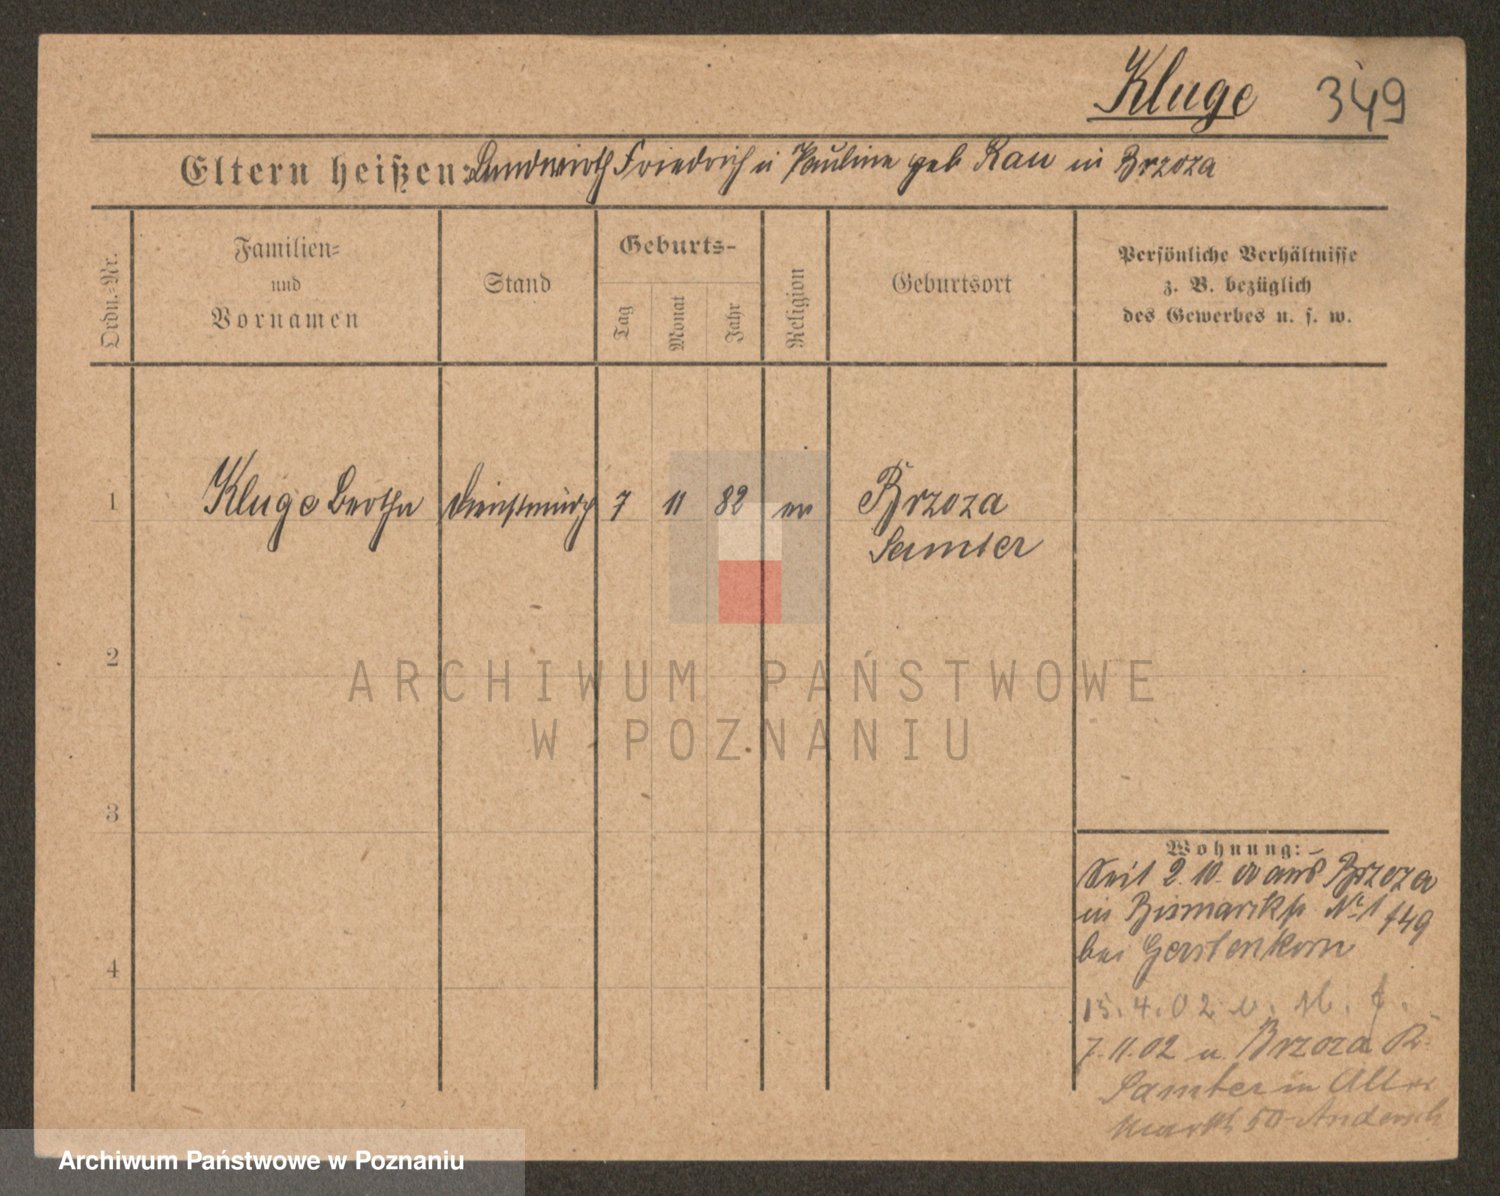 Kluge 349
Eltern heißen: Landwirth Friedrich u Pauline geb Rau in Brzoza
Ordn.-Nr.
Familien-
und
Vornamen
Stand
Geburts-
Tag
Monat
Jahr
Religion
Geburtsort
Persönliche Verhältnisse
z. B. bezüglich
des Gewerbes u. s. w.
1 Kluge Bertha Dienstmädch 7 11 82 ev Brzoza
Samter
2
3
4
Wohnung:
Seit 2.10.00 aus Brzoza
in Bismarckstr No 1 f49
bei Gerstenkorn
15.4.02
7.11.02 Brzoza
Samter in Alter
Markt 50
ARCHIWUM PAŃSTWOWE
W POZNANIU
Archiwum Państwowe w Poznaniu